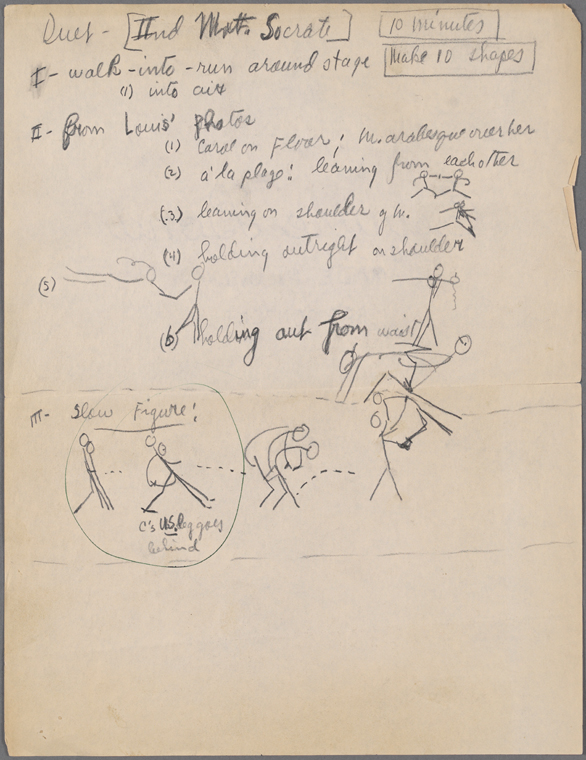 Duet - [IInd Mvt. Socrate]
10 minutes
Make 10 shapes
I - walk-into-run around stage
(1) into air
II - from Louis' photos
(1) Carol on Floor; M. arabesque over her
(2) a' la plage: leaning from each other
(3) leaning on shoulder of M.
(4) holding outright on shoulder
(5)
(6) holding out from waist
III - Slow Figure:
C's U.S. leg goes
behind